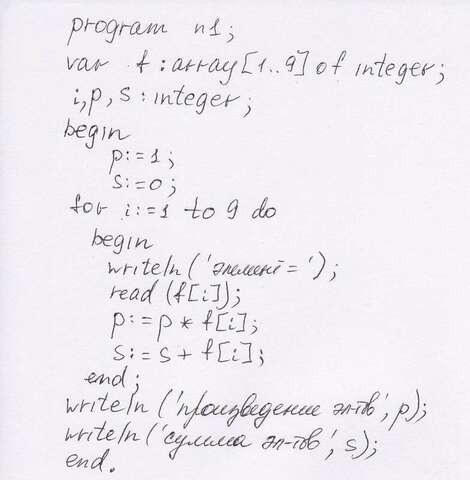 program n1;
var f : array [1..9] of integer;
i, p, s : integer;
begin
p:=1;
s:=0;
for i:=1 to 9 do
begin
writeln ('элемент=');
read (f[i]);
p:=p * f[i];
s:=s + f[i];
end;
writeln ('произведение эл-тов', p);
writeln ('сумма эл-тов', s);
end.